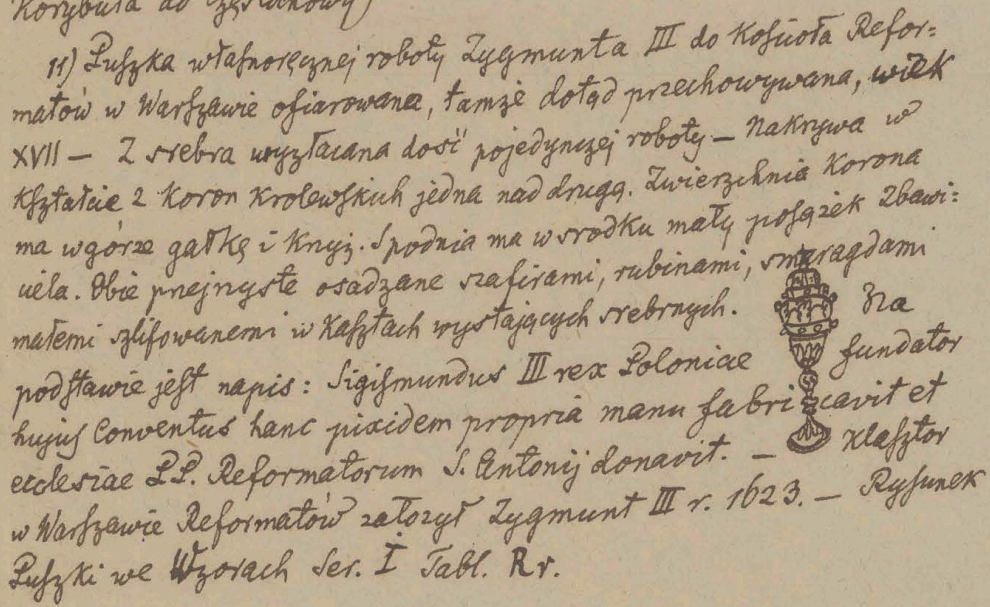 Korybuta do Częstochowy)
11) Puszka własnoręcznej roboty Zygmunta III do Kościoła Refor=
matów w Warszawie ofiarowana, tamże dotąd przechowywana, wiek
XVII — Z srebra wyzłacana dość pojedynczej roboty — Nakrywa w
Kształcie 2 Koron Krolewskich jedna nad drugą. Zwierzchnia Korona
ma w górze gałkę i Krzyż. Spodnia ma w srodku mały posążek Zbawi=
ciela. Obie przejrzyste osadzane szafirami, rubinami, smaragdami
małemi szlifowanemi w Kasztach wystających srebrnych. Na
podstawie jest napis: Sigismundus III rex Poloniae fundator
hujus Conventus hanc pixidem propria manu fabricavit et
ecclesiae P.P. Reformatorum S. Antonij donavit. — Klasztor
w Warszawie Reformatów założył Zygmunt III r. 1623. — Rysunek
Puszki we Wzorach Ser. I Tabl. R r.